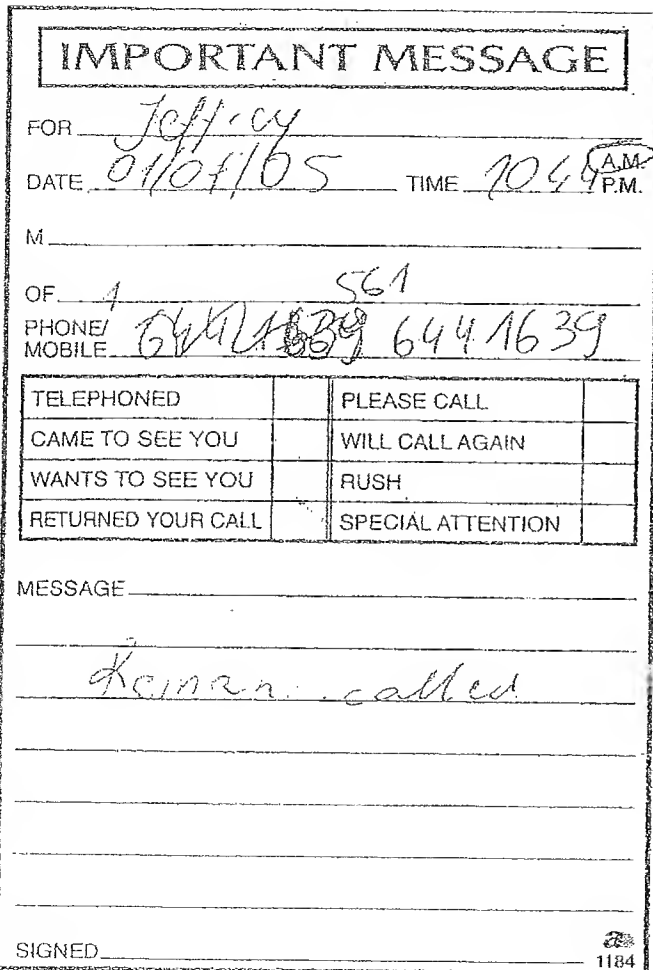 IMPORTANT MESSAGE
FOR Jeffrey
DATE 01/07/05 TIME 10 44 A.M.
P.M.
M
OF 561
PHONE/
MOBILE 644 1639
TELEPHONED PLEASE CALL
CAME TO SEE YOU WILL CALL AGAIN
WANTS TO SEE YOU RUSH
RETURNED YOUR CALL SPECIAL ATTENTION
MESSAGE
called
SIGNED
1184